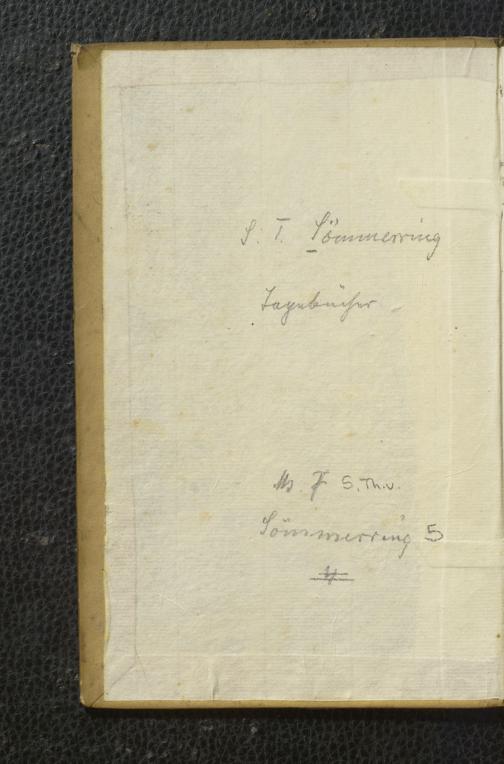 S. T. Sömmerring
Tagebücher
Ms F S. Th. v.
Sömmerring 5
4